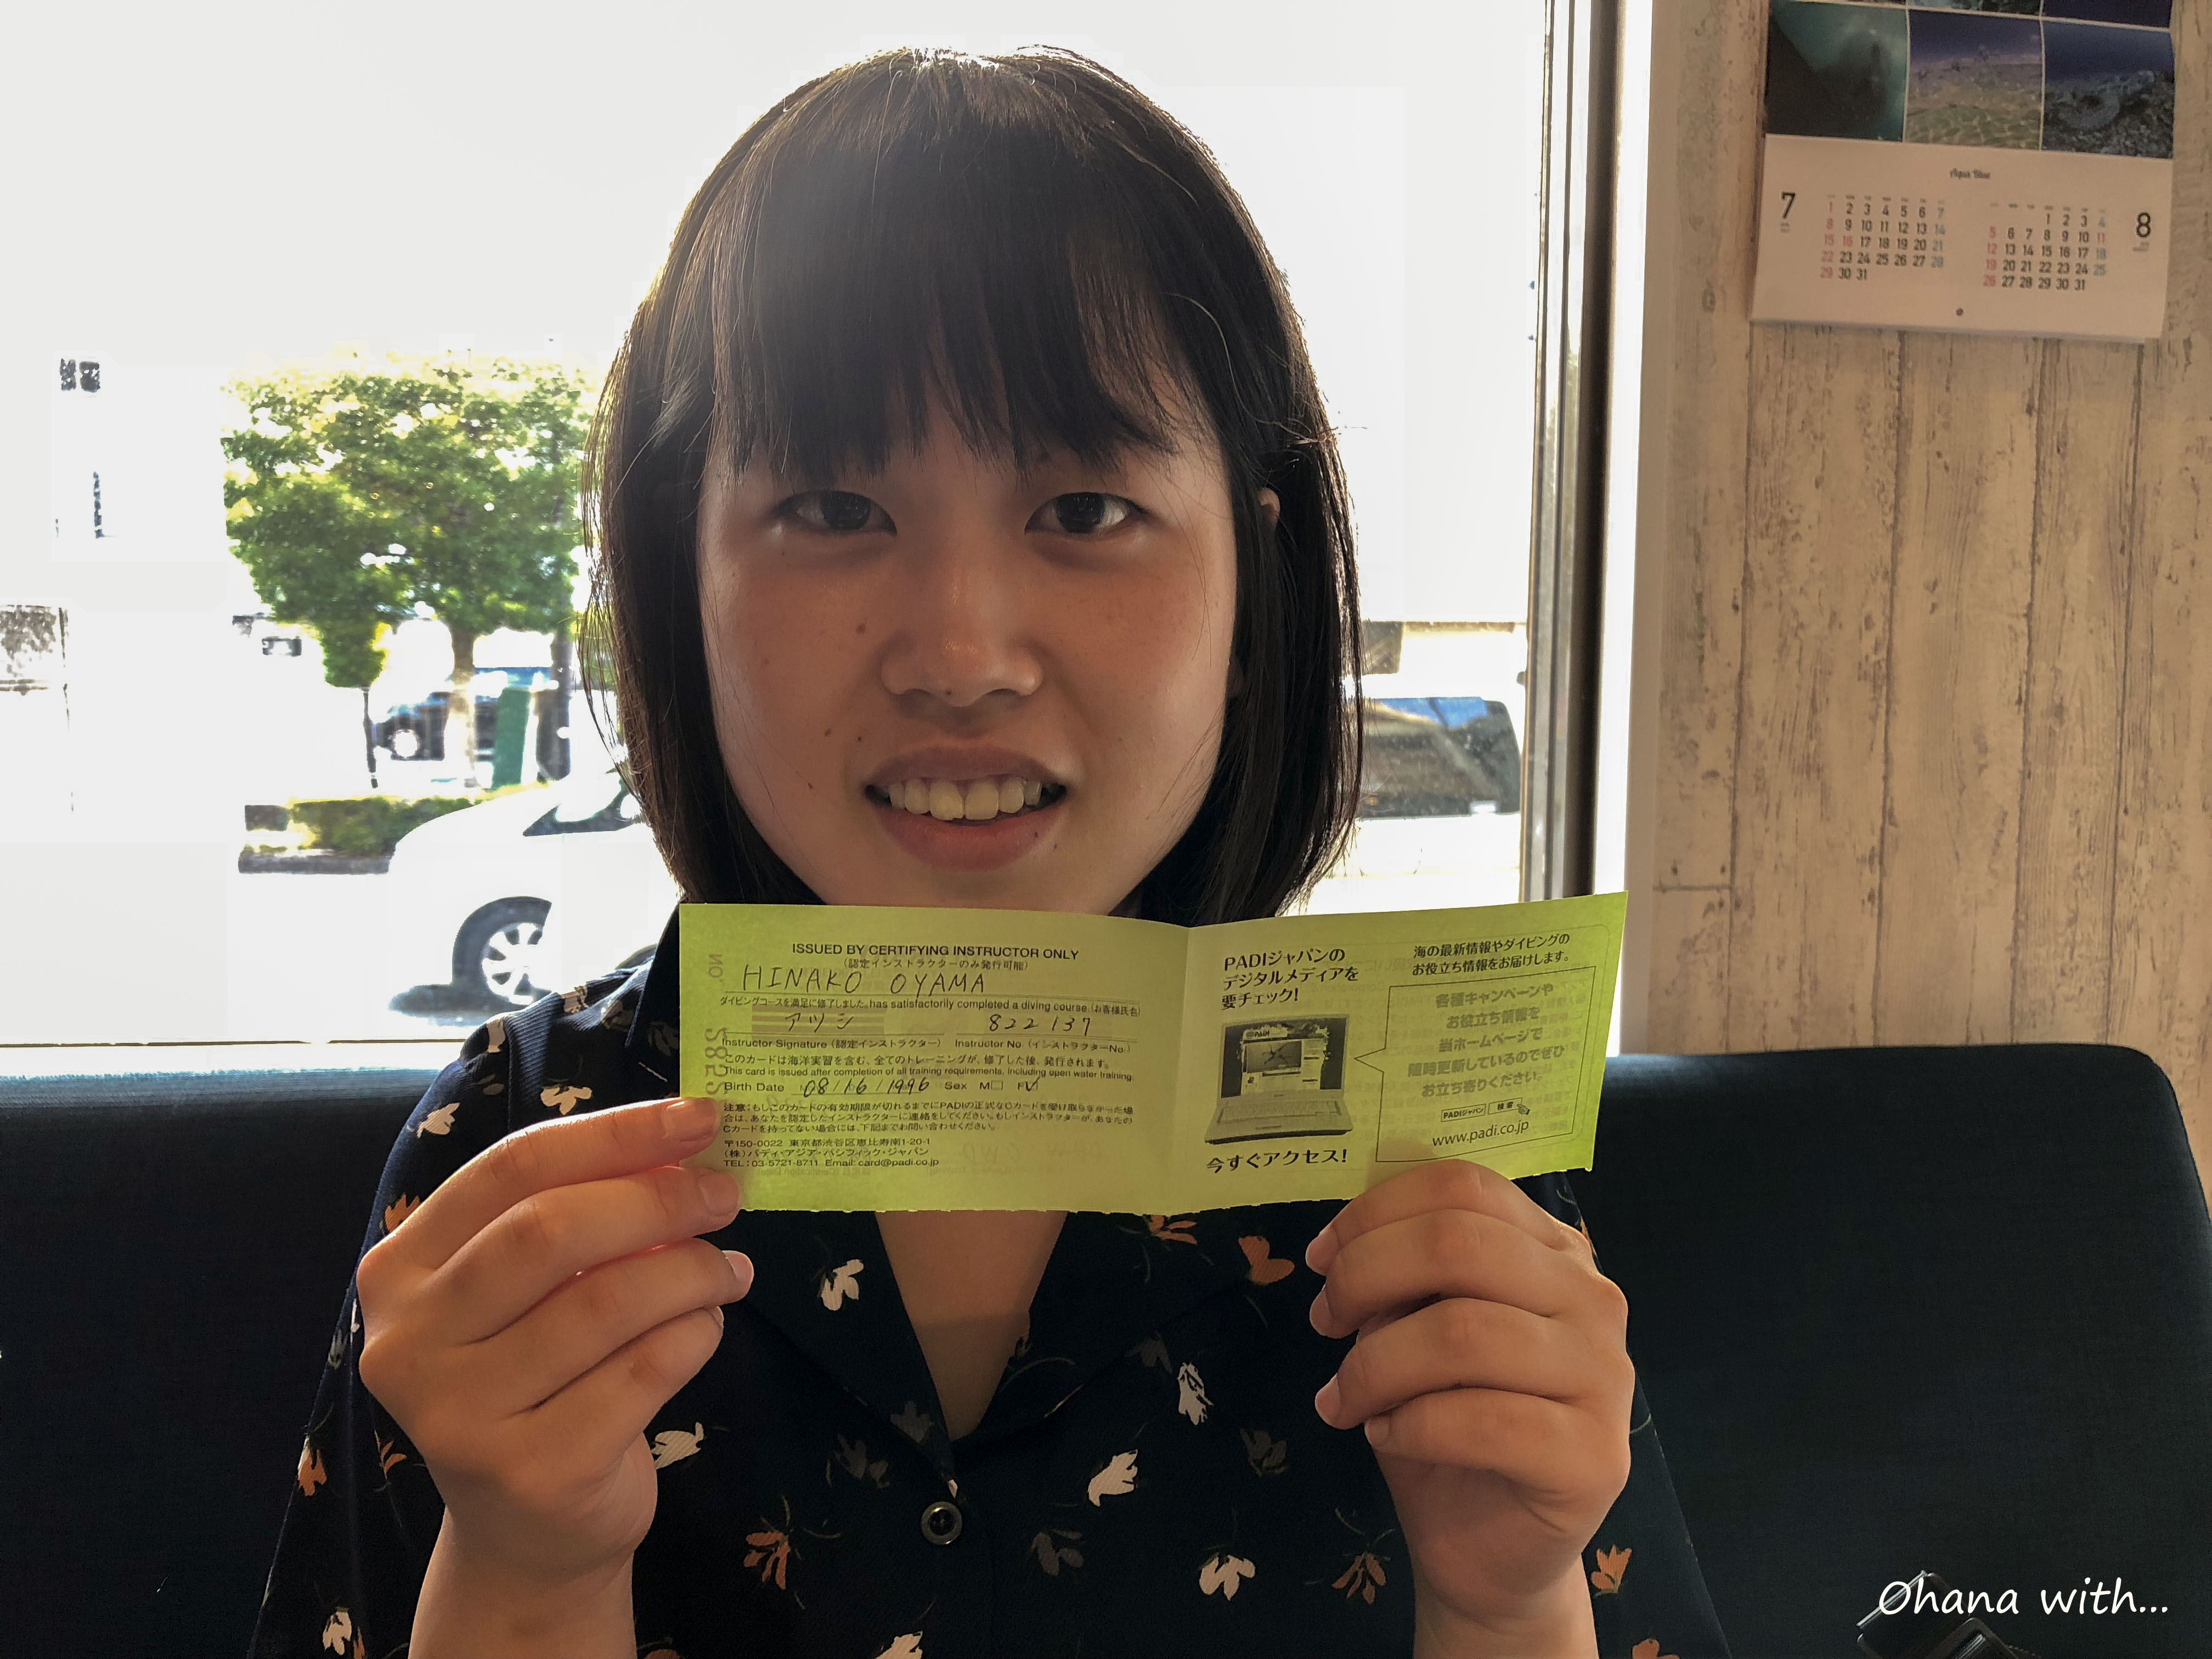 Aqua Blue
7
1 2 3 4 5 6 7
8 9 10 11 12 13 14
15 16 17 18 19 20 21
22 23 24 25 26 27 28
29 30 31
8
1 2 3 4
5 6 7 8 9 10 11
12 13 14 15 16 17 18
19 20 21 22 23 24 25
26 27 28 29 30 31
ISSUED BY CERTIFYING INSTRUCTOR ONLY
(認定インストラクターのみ発行可能)
HINAKO OYAMA
ダイビングコースを満足に修了しました。has satisfactorily completed a diving course.(お客様氏名)
アツシ 822137
Instructor Signature (認定インストラクター) Instructor No. (インストラクターNo.)
このカードは海洋実習を含む、全てのトレーニングが、修了した後、発行されます。
This card is issued after completion of all training requirements, including open water training.
Birth Date 08/16/1996 Sex M□ F☑
注意:もしこのカードの有効期限が切れるまでにPADIの正式なCカードを受け取らなかった場
合は、あなたを認定したインストラクターに連絡をしてください。もしインストラクターが、あなたの
Cカードを持ってない場合には、下記までお問い合わせください。
〒150-0022 東京都渋谷区恵比寿南1-20-1
(株)パディ・アジア・パシフィック・ジャパン
TEL:03-5721-8711 Email: card@padi.co.jp
PADIジャパンの
デジタルメディアを
要チェック!
海の最新情報やダイビングの
お役立ち情報をお届けします。
各種キャンペーンや
お役立ち情報を
当ホームページで
随時更新しているのでぜひ
お立ち寄りください。
PADIジャパン 検索
www.padi.co.jp
今すぐアクセス!
Ohana with...